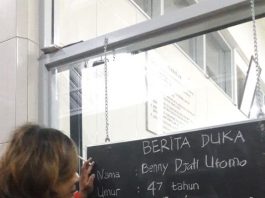 BERITA DUKA
Nama : Benny Djati Utomo
Umur : 47 tahun